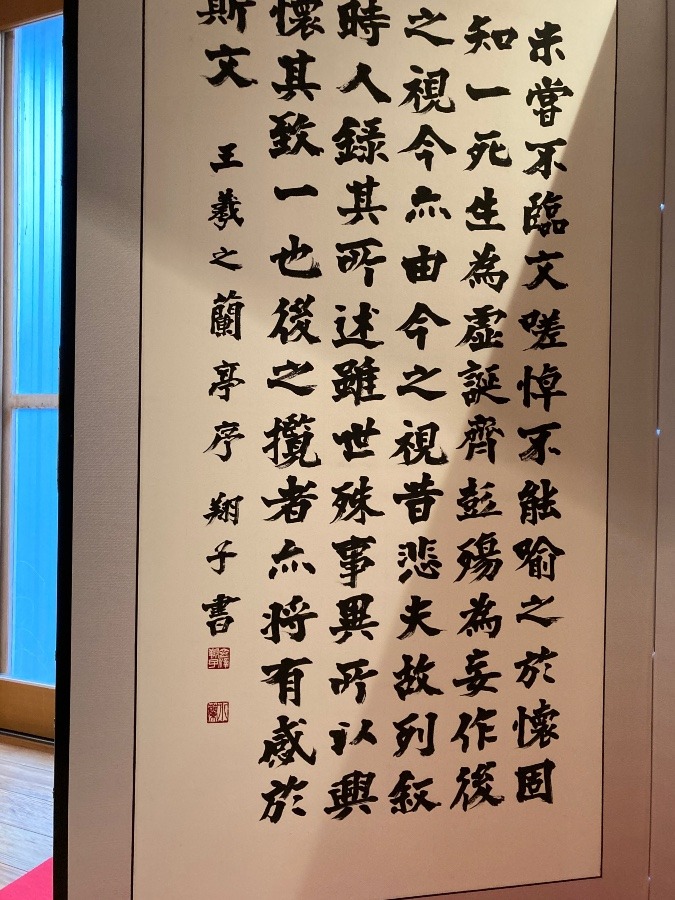 未嘗不臨文嗟悼不能喻之於懷固
知一死生為虛誕齊彭殤為妄作後
之視今亦由今之視昔悲夫故列叙
時人錄其所述雖世殊事異所以興
懷其致一也後之攬者亦将有感於
斯文 王羲之蘭亭序 翔子書